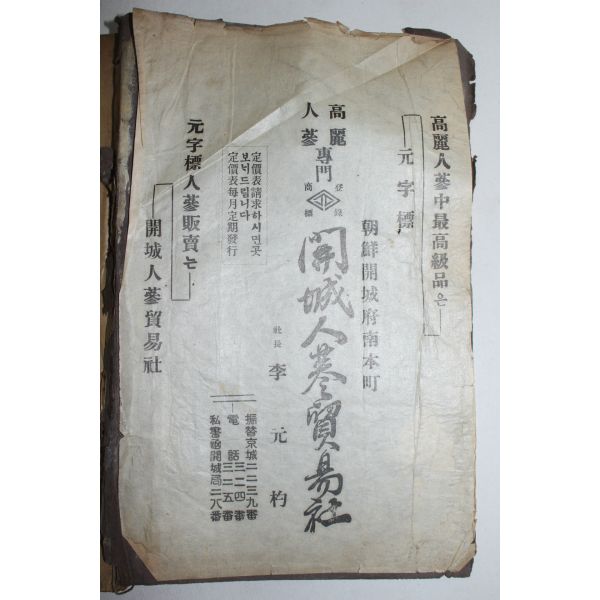 高麗人蔘中最高級品은
元字標
朝鮮開城府南本町
高麗人蔘專門
登錄商標
開城人蔘貿易社
社長 李元杓
振替京城二二三九番
電話三二四番
三二五番
私書函開城局二八番
定價表請求하시면곳
보닉드립니다
定價表每月定期發行
元字標人蔘販賣는
開城人蔘貿易社